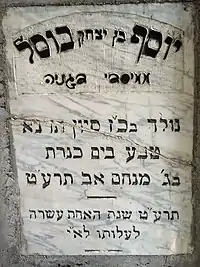 יוסף בן יצחק בוסל
ממיסדי דגניה
נולד בכ"ז סיון תרנ"א
טבע בים כנרת
בג' מנחם אב תרע"ט
תרע"ט שנת האחת עשרה
לעלותו לא"י